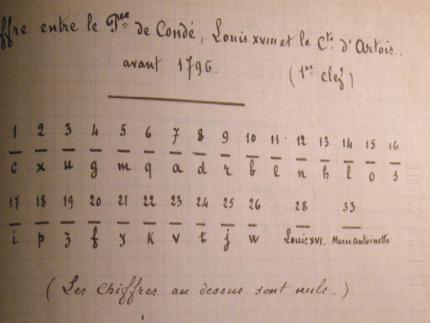 ffre entre le Pce de Condé, Louis XVIII et le Cte. d'Artois.
avant 1796. (1re clef)
1 2 3 4 5 6 7 8 9 10 11 12 13 14 15 16
c x u g m q a d r b e n h l o s
17 18 19 20 21 22 23 24 25 26 28 33
i p z f y k v t j w Louis XVI. Marie Antoinette
(Les chiffres au dessus sont nuls.)